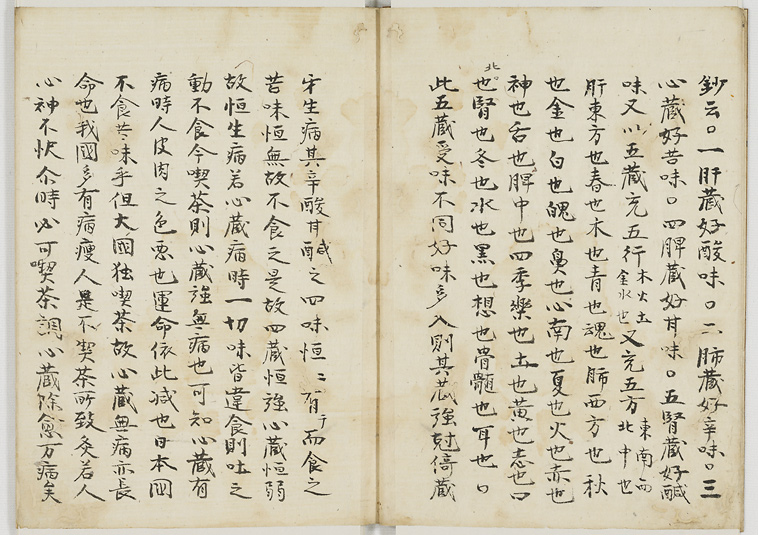 鈔云○一肝蔵好酸味○二肺蔵好辛味○三
心蔵好苦味○四脾蔵好甘味○五腎蔵好醎
味又以五蔵充五行木火土金水也又充五方東南西北中也
肝東方也春也木也青也魂也肺西方也秋
也金也白也魄也鼻也心南也夏也火也赤也
神也舌也脾中也四季樂也土也黄也志也口
北○
也腎也冬也水也黒也想也骨髄也耳也○
此五蔵受味不同好味多入則其蔵強尅傍蔵
生病其辛酸甘醎之四味恒ニ有テ而食之
苦味恒無故不食之是故四蔵恒強心蔵恒弱
故恒生病若心蔵病時一切味皆違食則吐之
動不食今喫茶則心蔵強無病也可知心蔵有
病時人皮肉之色悪也運命依此減也日本國
不食苦味乎但大國独喫茶故心蔵無病亦長
命也我國多有病瘦人是不喫茶所致矣若人
心神不快尒時必可喫茶調心蔵除愈万病矣